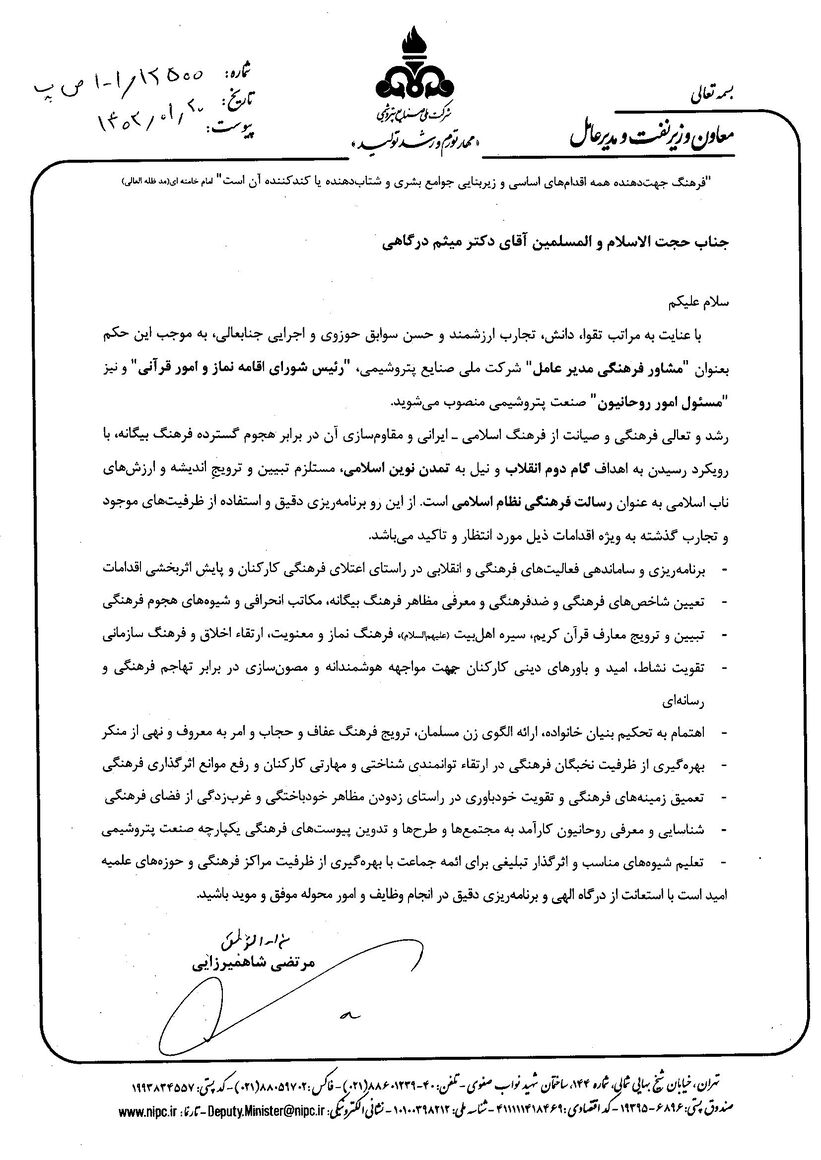 بسمه تعالی
معاون وزیر نفت و مدیرعامل
شرکت ملی صنایع پتروشیمی
«مهار تورم و رشد تولید»
شماره: ۱-۱/۱۲۵۰۰ ص پ
تاریخ: ۱۴۰۲/۰۱/۲۰
پیوست:
"فرهنگ جهت‌دهنده همه اقدام‌های اساسی و زیربنایی جوامع بشری و شتاب‌دهنده یا کندکننده آن است" امام خامنه ای(مد ظله العالی)
جناب حجت الاسلام و المسلمین آقای دکتر میثم درگاهی
سلام علیکم
با عنایت به مراتب تقوا، دانش، تجارب ارزشمند و حسن سوابق حوزوی و اجرایی جنابعالی، به موجب این حکم
بعنوان "مشاور فرهنگی مدیر عامل" شرکت ملی صنایع پتروشیمی، "رئیس شورای اقامه نماز و امور قرآنی" و نیز
"مسئول امور روحانیون" صنعت پتروشیمی منصوب می‌شوید.
رشد و تعالی فرهنگی و صیانت از فرهنگ اسلامی ـ ایرانی و مقاوم‌سازی آن در برابر هجوم گسترده فرهنگ بیگانه، با
رویکرد رسیدن به اهداف گام دوم انقلاب و نیل به تمدن نوین اسلامی، مستلزم تبیین و ترویج اندیشه و ارزش‌های
ناب اسلامی به عنوان رسالت فرهنگی نظام اسلامی است. از این رو برنامه‌ریزی دقیق و استفاده از ظرفیت‌های موجود
و تجارب گذشته به ویژه اقدامات ذیل مورد انتظار و تاکید می‌باشد.
- برنامه‌ریزی و ساماندهی فعالیت‌های فرهنگی و انقلابی در راستای اعتلای فرهنگی کارکنان و پایش اثربخشی اقدامات
- تعیین شاخص‌های فرهنگی و ضدفرهنگی و معرفی مظاهر فرهنگ بیگانه، مکاتب انحرافی و شیوه‌های هجوم فرهنگی
- تبیین و ترویج معارف قرآن کریم، سیره اهل‌بیت (علیهم‌السلام)، فرهنگ نماز و معنویت، ارتقاء اخلاق و فرهنگ سازمانی
- تقویت نشاط، امید و باورهای دینی کارکنان جهت مواجهه هوشمندانه و مصون‌سازی در برابر تهاجم فرهنگی و
رسانه‌ای
- اهتمام به تحکیم بنیان خانواده، ارائه الگوی زن مسلمان، ترویج فرهنگ عفاف و حجاب و امر به معروف و نهی از منکر
- بهره‌گیری از ظرفیت نخبگان فرهنگی در ارتقاء توانمندی شناختی و مهارتی کارکنان و رفع موانع اثرگذاری فرهنگی
- تعمیق زمینه‌های فرهنگی و تقویت خودباوری در راستای زدودن مظاهر خودباختگی و غرب‌زدگی از فضای فرهنگی
- شناسایی و معرفی روحانیون کارآمد به مجتمع‌ها و طرح‌ها و تدوین پیوست‌های فرهنگی یکپارچه صنعت پتروشیمی
- تعلیم شیوه‌های مناسب و اثرگذار تبلیغی برای ائمه جماعت با بهره‌گیری از ظرفیت مراکز فرهنگی و حوزه‌های علمیه
امید است با استعانت از درگاه الهی و برنامه‌ریزی دقیق در انجام وظایف و امور محوله موفق و موید باشید.
مرتضی شاهمیرزایی
تهران، خیابان شیخ بهایی شمالی، شماره ۱۴۴، ساختمان شهید نواب صفوی - تلفن: ۴۰-۸۸۶۰۱۲۳۹(۰۲۱) - فاکس: ۸۸۰۵۹۷۰۲(۰۲۱) - کد پستی: ۱۹۹۳۸۳۴۵۵۷
صندوق پستی: ۶۸۹۶-۱۹۳۹۵ - کد اقتصادی: ۴۱۱۱۱۱۴۱۸۴۶۹ - شناسه ملی: ۱۰۱۰۰۳۹۸۲۱۲ - نشانی الکترونیکی: Deputy.Minister@nipc.ir - تارنما: www.nipc.ir